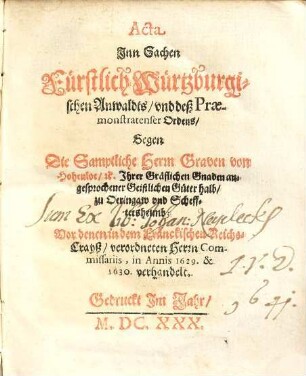 Acta
Inn Sachen
Fürstlich Würtzburgi-
schen Anwaldts/ vnd deß Præ-
monstratenser Ordens/
Gegen
Die Samptliche Herrn Graven von
Hohenloe/ ꝛc. Ihrer Gräflichen Gnaden an-
gesprochener Geistlichen Güter halb/
zu Oeringaw vnd Scheff-
tersheimb/
Sum Ex
Vor denen in dem Fränckischen Reichs-
Crayß/ verordneten Herrn Com-
missariis, in Annis 1629. &
1630. verhandelt.
Gedruckt Im Jahr/
M. DC. XXX.